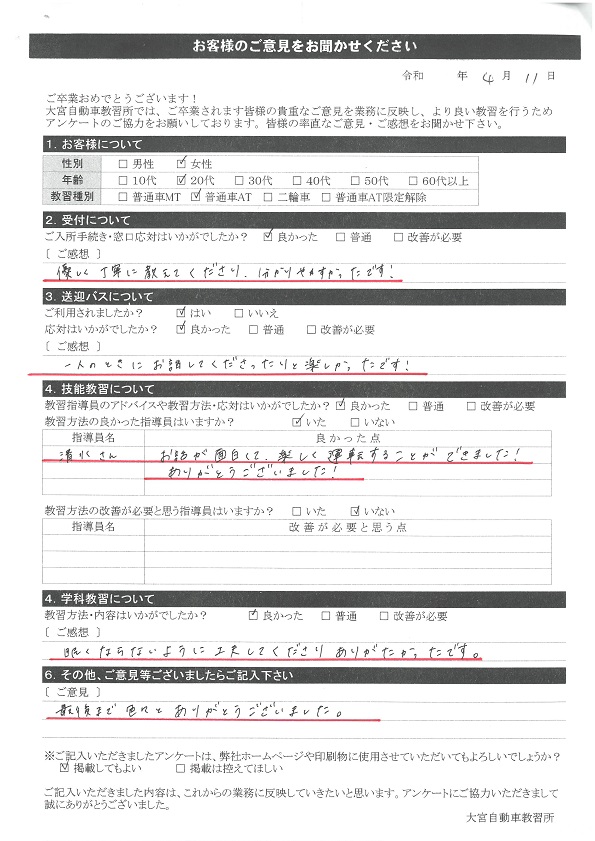 お客様のご意見をお聞かせください
令和 年 4 月 11 日
ご卒業おめでとうございます！
大宮自動車教習所では、ご卒業されます皆様の貴重なご意見を業務に反映し、より良い教習を行うため
アンケートのご協力をお願いしております。皆様の率直なご意見・ご感想をお聞かせ下さい。
1. お客様について
性別 □ 男性 ☑ 女性
年齢 □ 10代 ☑ 20代 □ 30代 □ 40代 □ 50代 □ 60代以上
教習種別 □ 普通車MT ☑ 普通車AT □ 二輪車 □ 普通車AT限定解除
2. 受付について
ご入所手続き・窓口応対はいかがでしたか？ ☑ 良かった □ 普通 □ 改善が必要
［ ご感想 ］
優しく丁寧に教えてくださり、分かりやすかったです！
3. 送迎バスについて
ご利用されましたか？ ☑ はい □ いいえ
応対はいかがでしたか？ ☑ 良かった □ 普通 □ 改善が必要
［ ご感想 ］
一人のときにお話してくださったりと楽しかったです！
4. 技能教習について
教習指導員のアドバイスや教習方法・応対はいかがでしたか？ ☑ 良かった □ 普通 □ 改善が必要
教習方法の良かった指導員はいますか？ ☑ いた □ いない
指導員名 良かった点
清水さん お話が面白くて、楽しく運転することができました！
ありがとうございました！
教習方法の改善が必要と思う指導員はいますか？ □ いた ☑ いない
指導員名 改善が必要と思う点
4. 学科教習について
教習方法・内容はいかがでしたか？ ☑ 良かった □ 普通 □ 改善が必要
［ ご感想 ］
眠くならないように工夫してくださりありがたかったです。
6. その他、ご意見等ございましたらご記入下さい
［ ご意見 ］
最後まで色々とありがとうございました。
※ご記入いただきましたアンケートは、弊社ホームページや印刷物に使用させていただいてもよろしいでしょうか？
☑ 掲載してもよい □ 掲載は控えてほしい
ご記入いただきました内容は、これからの業務に反映していきたいと思います。アンケートにご協力いただきまして
誠にありがとうございました。
大宮自動車教習所